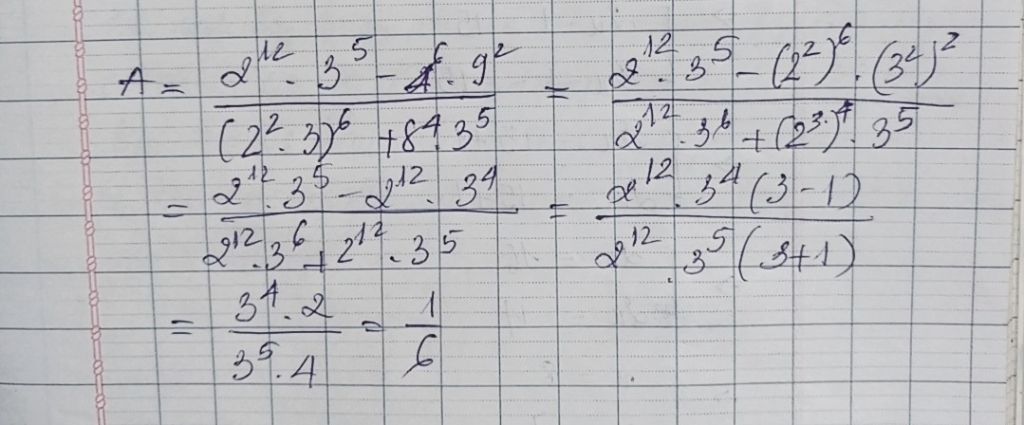 A = \frac{2^{12} \cdot 3^5 - 4^6 \cdot 9^2}{(2^2 \cdot 3)^6 + 8^4 \cdot 3^5} = \frac{2^{12} \cdot 3^5 - (2^2)^6 \cdot (3^2)^2}{2^{12} \cdot 3^6 + (2^3)^4 \cdot 3^5}
= \frac{2^{12} \cdot 3^5 - 2^{12} \cdot 3^4}{2^{12} \cdot 3^6 + 2^{12} \cdot 3^5} = \frac{2^{12} \cdot 3^4 (3 - 1)}{2^{12} \cdot 3^5 (3 + 1)}
= \frac{3^4 \cdot 2}{3^5 \cdot 4} = \frac{1}{6}